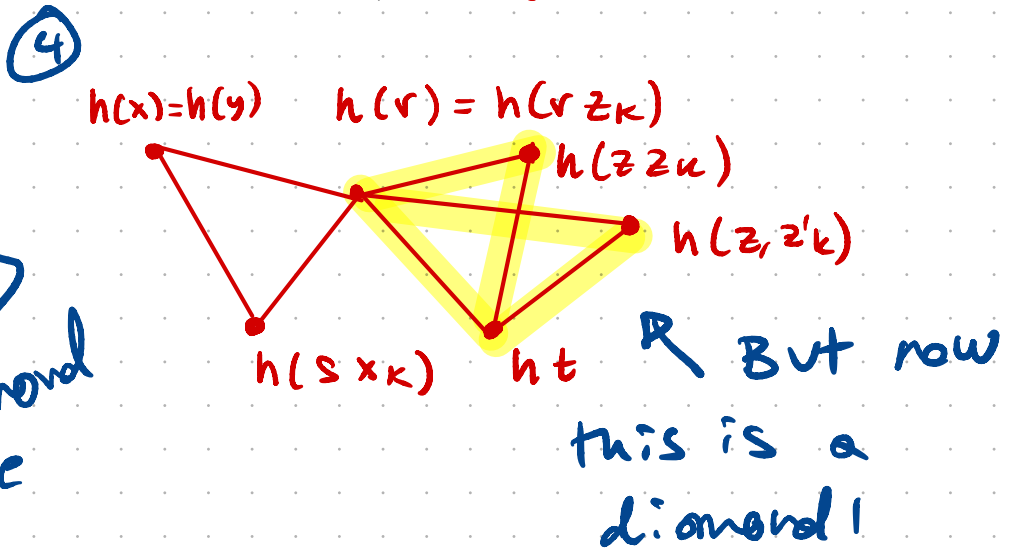 4
h(x)=h(y) h(r) = h(r zk)
h(z zk)
h(z, z'k)
h(s xk) ht
But now
this is a
diamond!